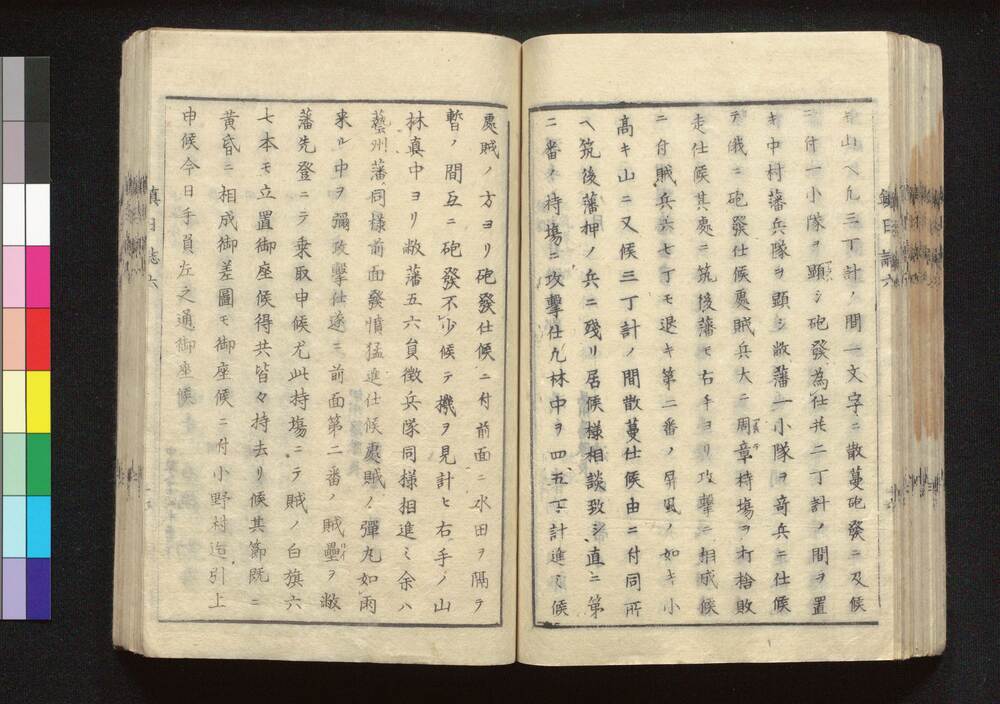 山ヘ凡三丁計ノ間一文字ニ散蔓砲發ニ及候
ニ付一小隊ヲ顕シ砲發為仕共二丁計ノ間ヲ置
キ中村藩兵隊ヲ顕シ敝藩一小隊ヲ奇兵ニ仕候
テ俄ニ砲發仕候處賊兵大ニ周章持場ヲ打捨敗
走仕候其處ニ筑後藩モ右手ヨリ攻撃ニ相成候
ニ付賊兵六七丁モ退キ第二番ノ屏風ノ如キ小
高キ山ニ又候三丁計ノ間散蔓仕候由ニ付同所
ヘ筑後藩押ノ兵ニ残リ居候様相談致シ直ニ第
二番ノ持場ニ攻撃仕凡林中ヲ四五丁計進ミ候
處賊ノ方ヨリ砲發仕候ニ付前面ニ水田ヲ隔テ
暫ノ間互ニ砲發不少候テ機ヲ見計ヒ右手ノ山
林真中ヨリ敝藩五六負徴兵隊同様相進ミ余ハ
藝州藩同様前面發憤猛進仕候處賊ノ彈丸如雨
来ル中ヲ彌攻撃仕遂ニ前面第二番ノ賊壘ヲ敝
藩先登ニテ乗取申候尤此持場ニテ賊ノ白旗六
七本モ立置御座候得共皆々持去リ候其節既ニ
黄昏ニ相成御差圖モ御座候ニ付小野村迄引上
申候今日手負左之通御座候
鎮日誌六